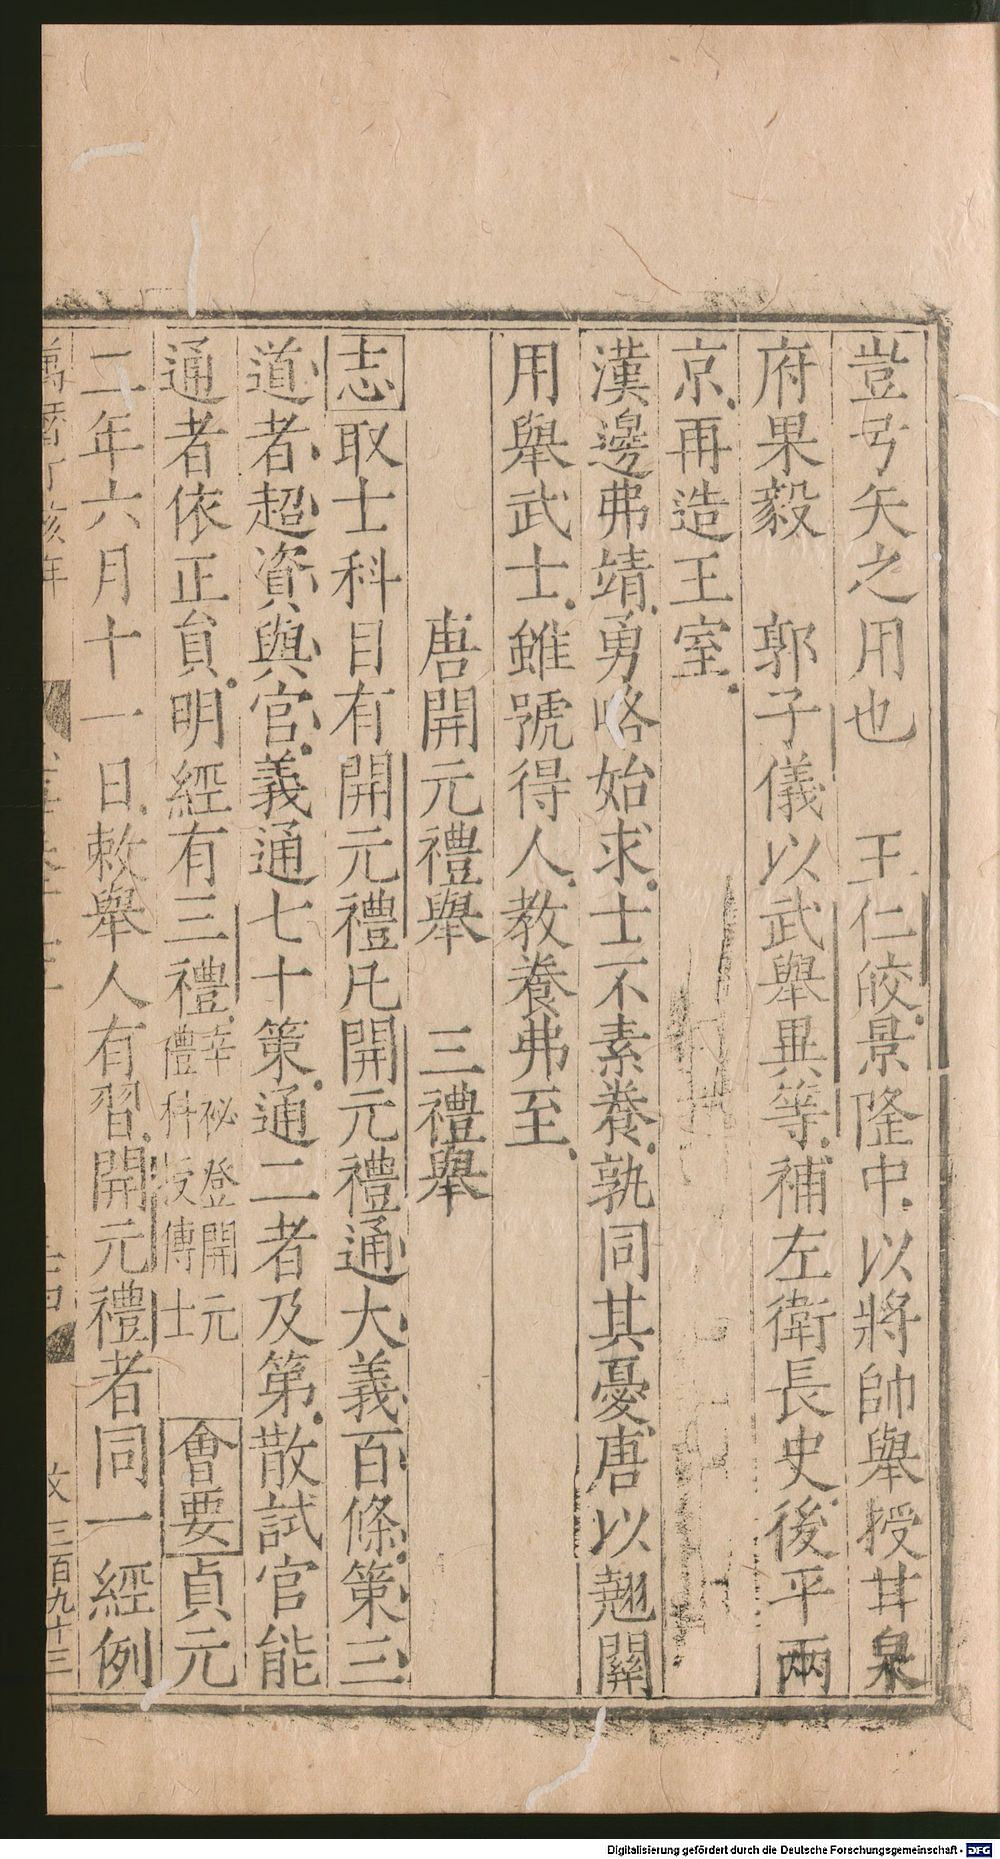 豈弓矢之用也　王仁皎景隆中以將帥舉授甘泉
府果毅　郭子儀以武舉異等補左衛長史後平兩
京再造王室
漢邊弗靖勇略始求士不素養孰同其憂唐以翹關
用舉武士雖號得人教養弗至
唐開元禮舉　三禮舉
志取士科目有開元禮凡開元禮通大義百條策三
道者超資與官義通七十策通二者及第散試官能
通者依正員明經有三禮辛祕登開元禮科授傳士會要貞元
二年六月十一日敕舉人有習開元禮者同一經例
萬曆丁亥年
三百九十三
Digitalisierung gefördert durch die Deutsche Forschungsgemeinschaft - DFG